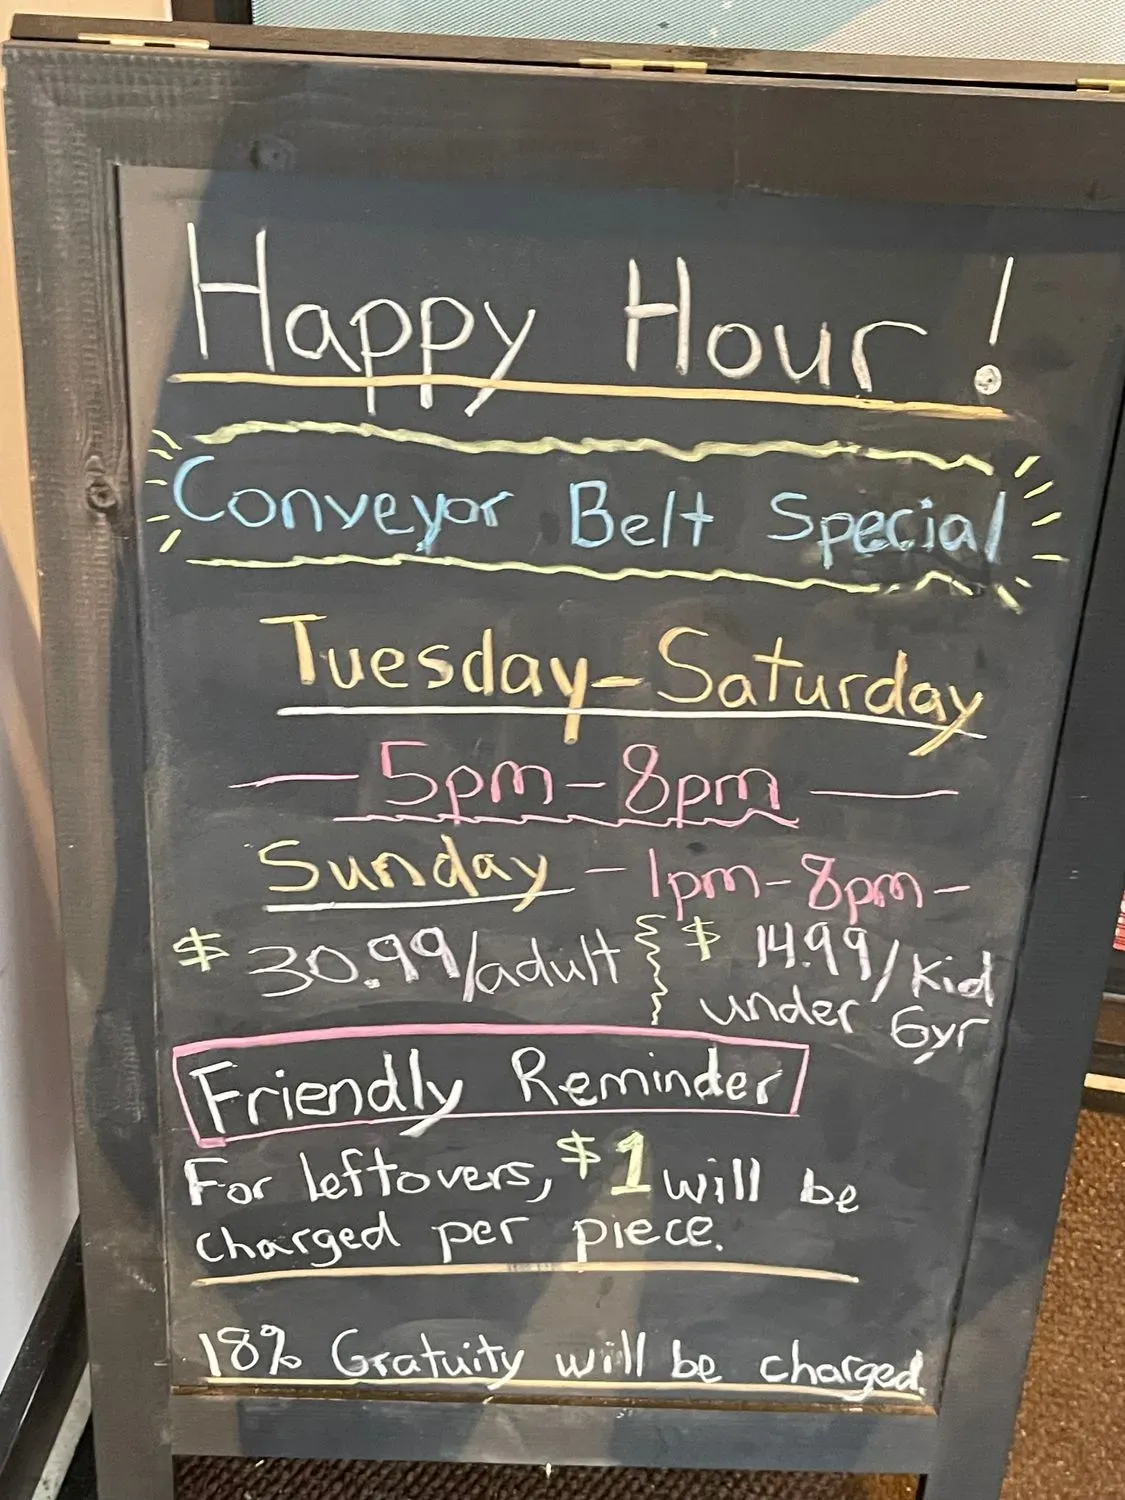 Happy Hour!
Conveyor Belt Special
Tuesday-Saturday
5pm-8pm
Sunday - 1pm-8pm-
$30.99/adult $14.99/Kid
under 6yr
Friendly Reminder
For leftovers, $1 will be
charged per piece.
18% Gratuity will be charged.